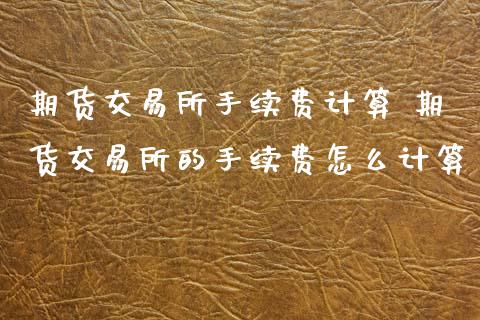 期货交易所手续费计算 期
货交易所的手续费怎么计算